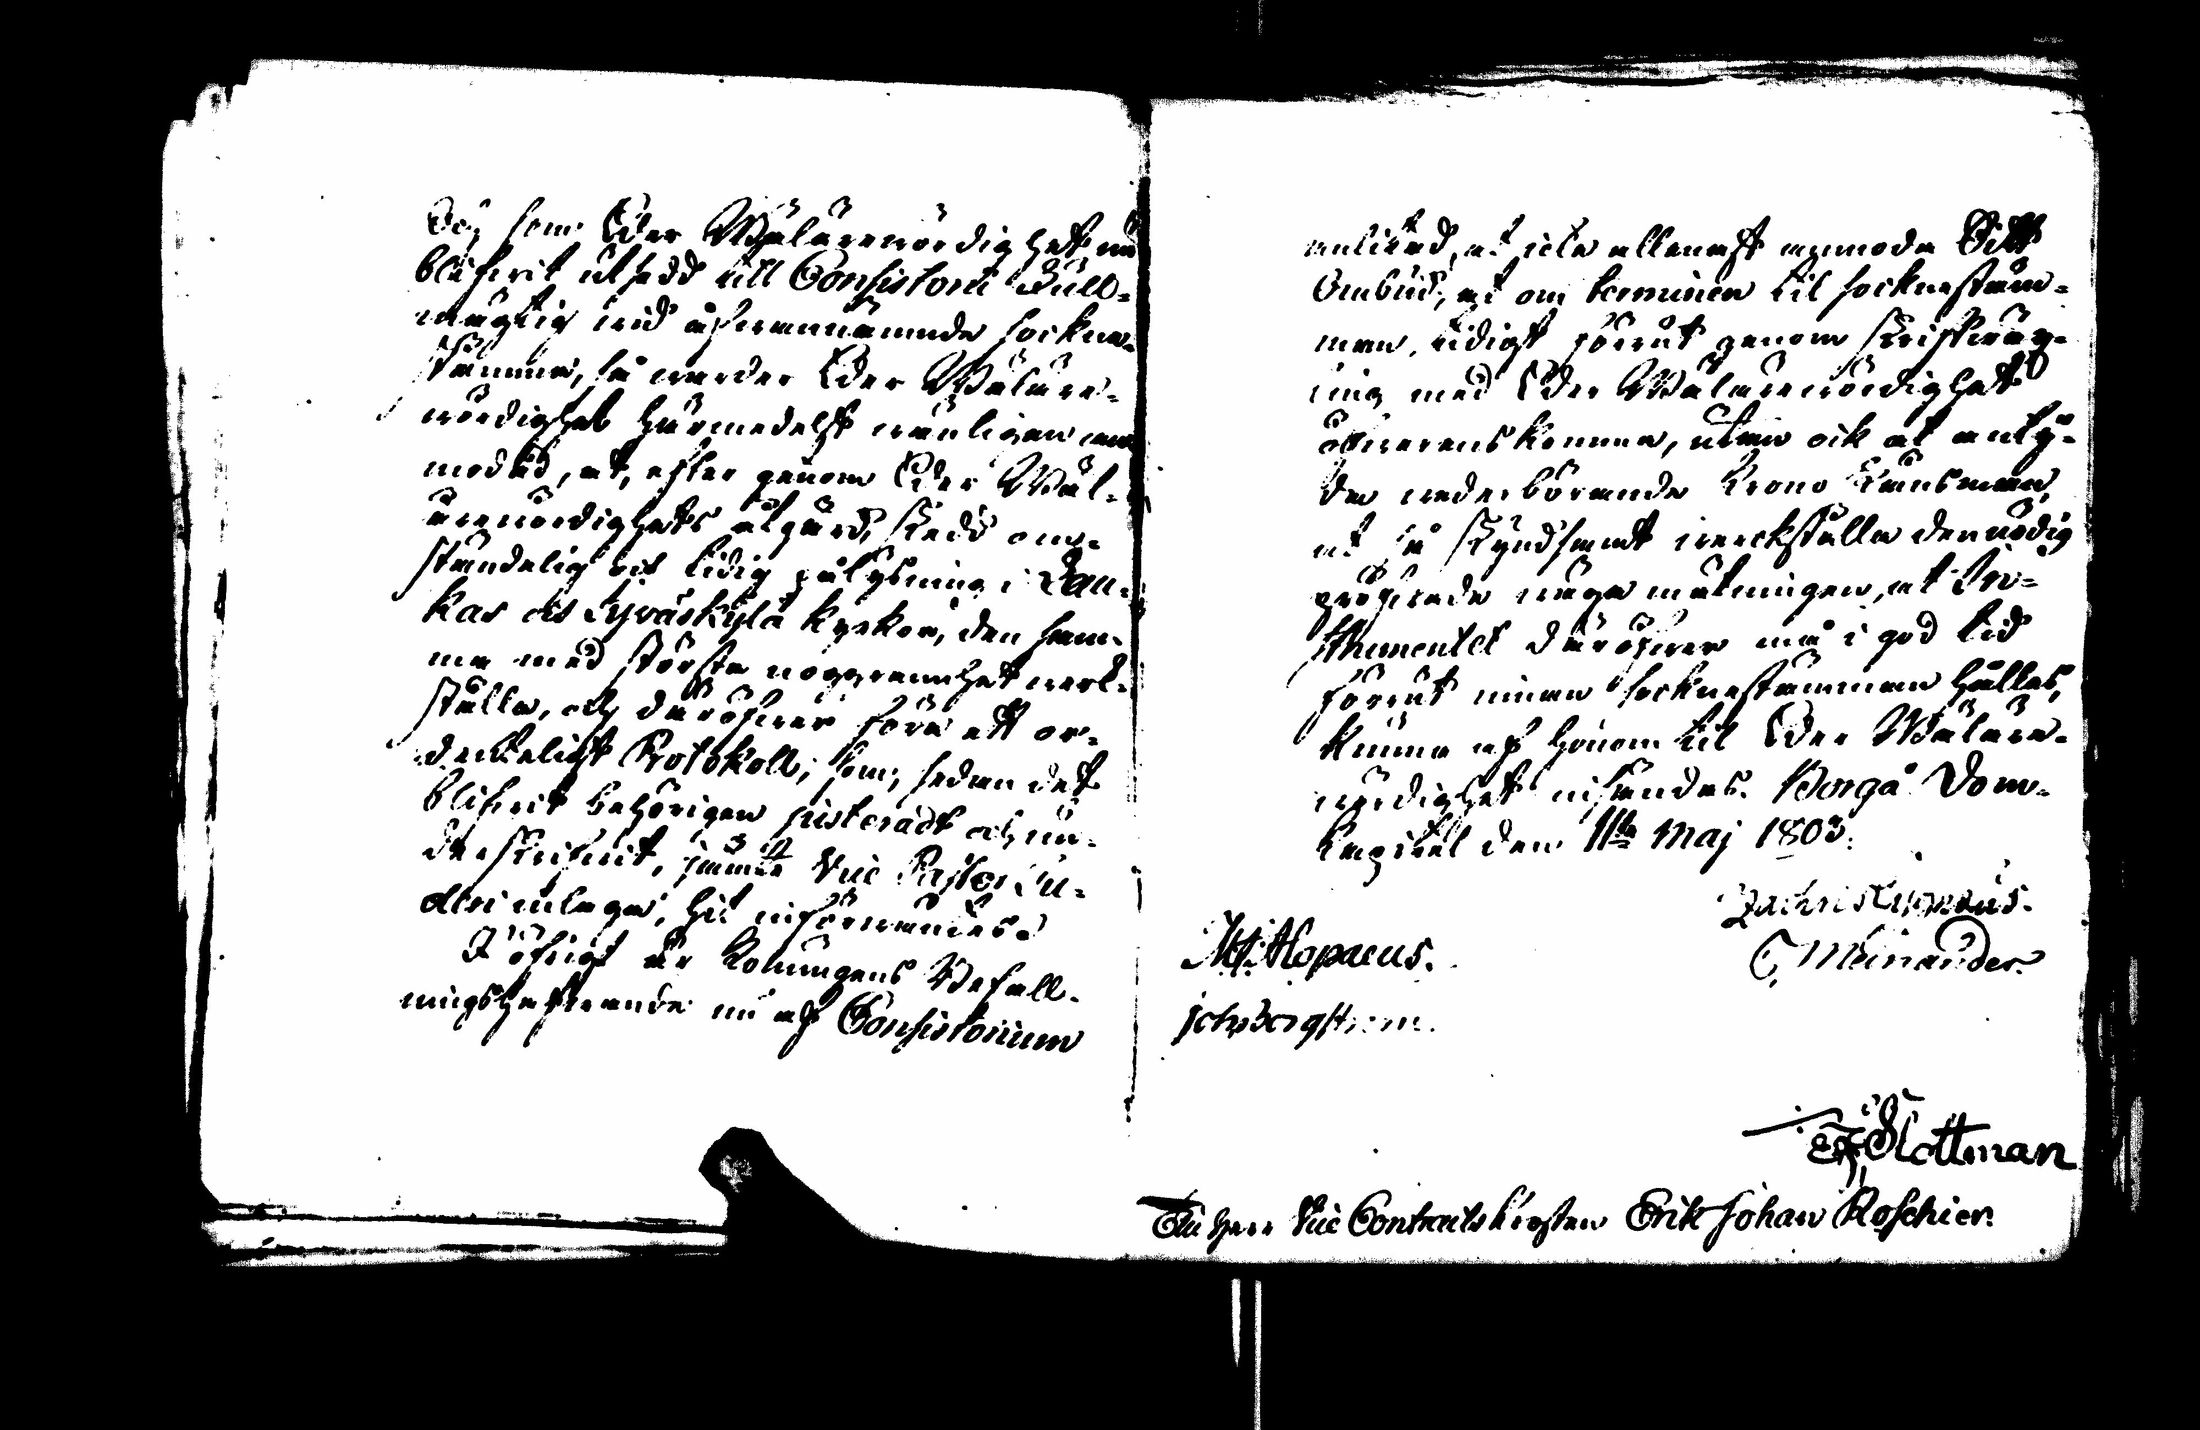 Och som Eder Wälärewördighet nu
blifwit utsedd till Consistorii Full-
mägtig wid åfwannämnde sockne-
stämma, så warder Eder Wäläre-
wördighet härmedelst wänligen an-
modad, at, efter genom Eder Wäl-
ärewördighets åtgärd, skedd om-
ständelig och tidig pålysning i Lau-
kas och Jyväskylä kyrkor, den sam-
ma med största noggrannhet werk-
ställa, och däröfwer föra ett or-
denteligit Protokoll; som, sedan det
blifwit behörigen justeradt och un-
derskrifwit, jämte Vice Pastor
inlaga, hit insörwäntes.
I öfrigt är Konungens Befall-
ningshafwande nu af Consistorium
anlitad, at icke allenast anmoda Sitt
Ombud, at om terminen til socknestäm-
man, tidigt förrut genom skriftwäx-
ling med Eder Wälärewördighet
öfwerenskomma, utan ock at anty-
da wederbörande Krono Länsman,
at så skyndsamt werckställa den nödig
pröfwade wägamätningen, at In-
strumentet däröfwer må i god tid
förrut innan socknestämman hålles,
kunna af honom til Eder Wäläre-
wördighet insändas. Borgå Dom-
Kapitel den 11te Maj 1803.
Zachris Cygnæus.
M: Alopaeus.
C, Meinander.
Joh: Borgström.
Slottman
Till Herr Vice Contracts Prosten Erik Johan Roschier.